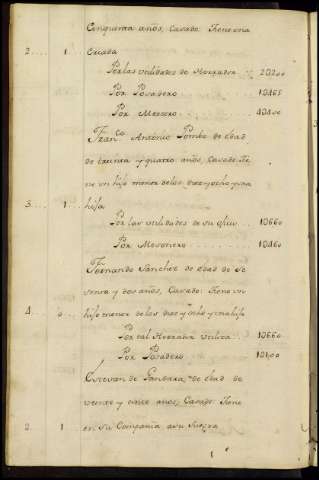 Cinquenta años, Casado. Tiene una
2.... 1 Criada
Por las utilidades de Herrador .. 20200
Por Posadero .... 10465
Por Mesonero .... 40400
Fran.co Antonio Pombo de edad
de treinta y quatro años, Casado. Tie
ne un hijo menor de los diez y ocho y una
3.... 1 hija
Por las utilidades de su oficio ... 10660
Por Mesonero .... 10460
Fernando Sanchez de edad de se
senta y dos años, Casado. Tiene un
4.... hijo menor de los diez y ocho y una hija
Por tal Herrador utiliza .. 10660
Por Posadero .... 10100
Estevan de Gandara, de edad de
veinte y cinco años, Casado. Tiene
2 1 en su Compañia a su Suegra